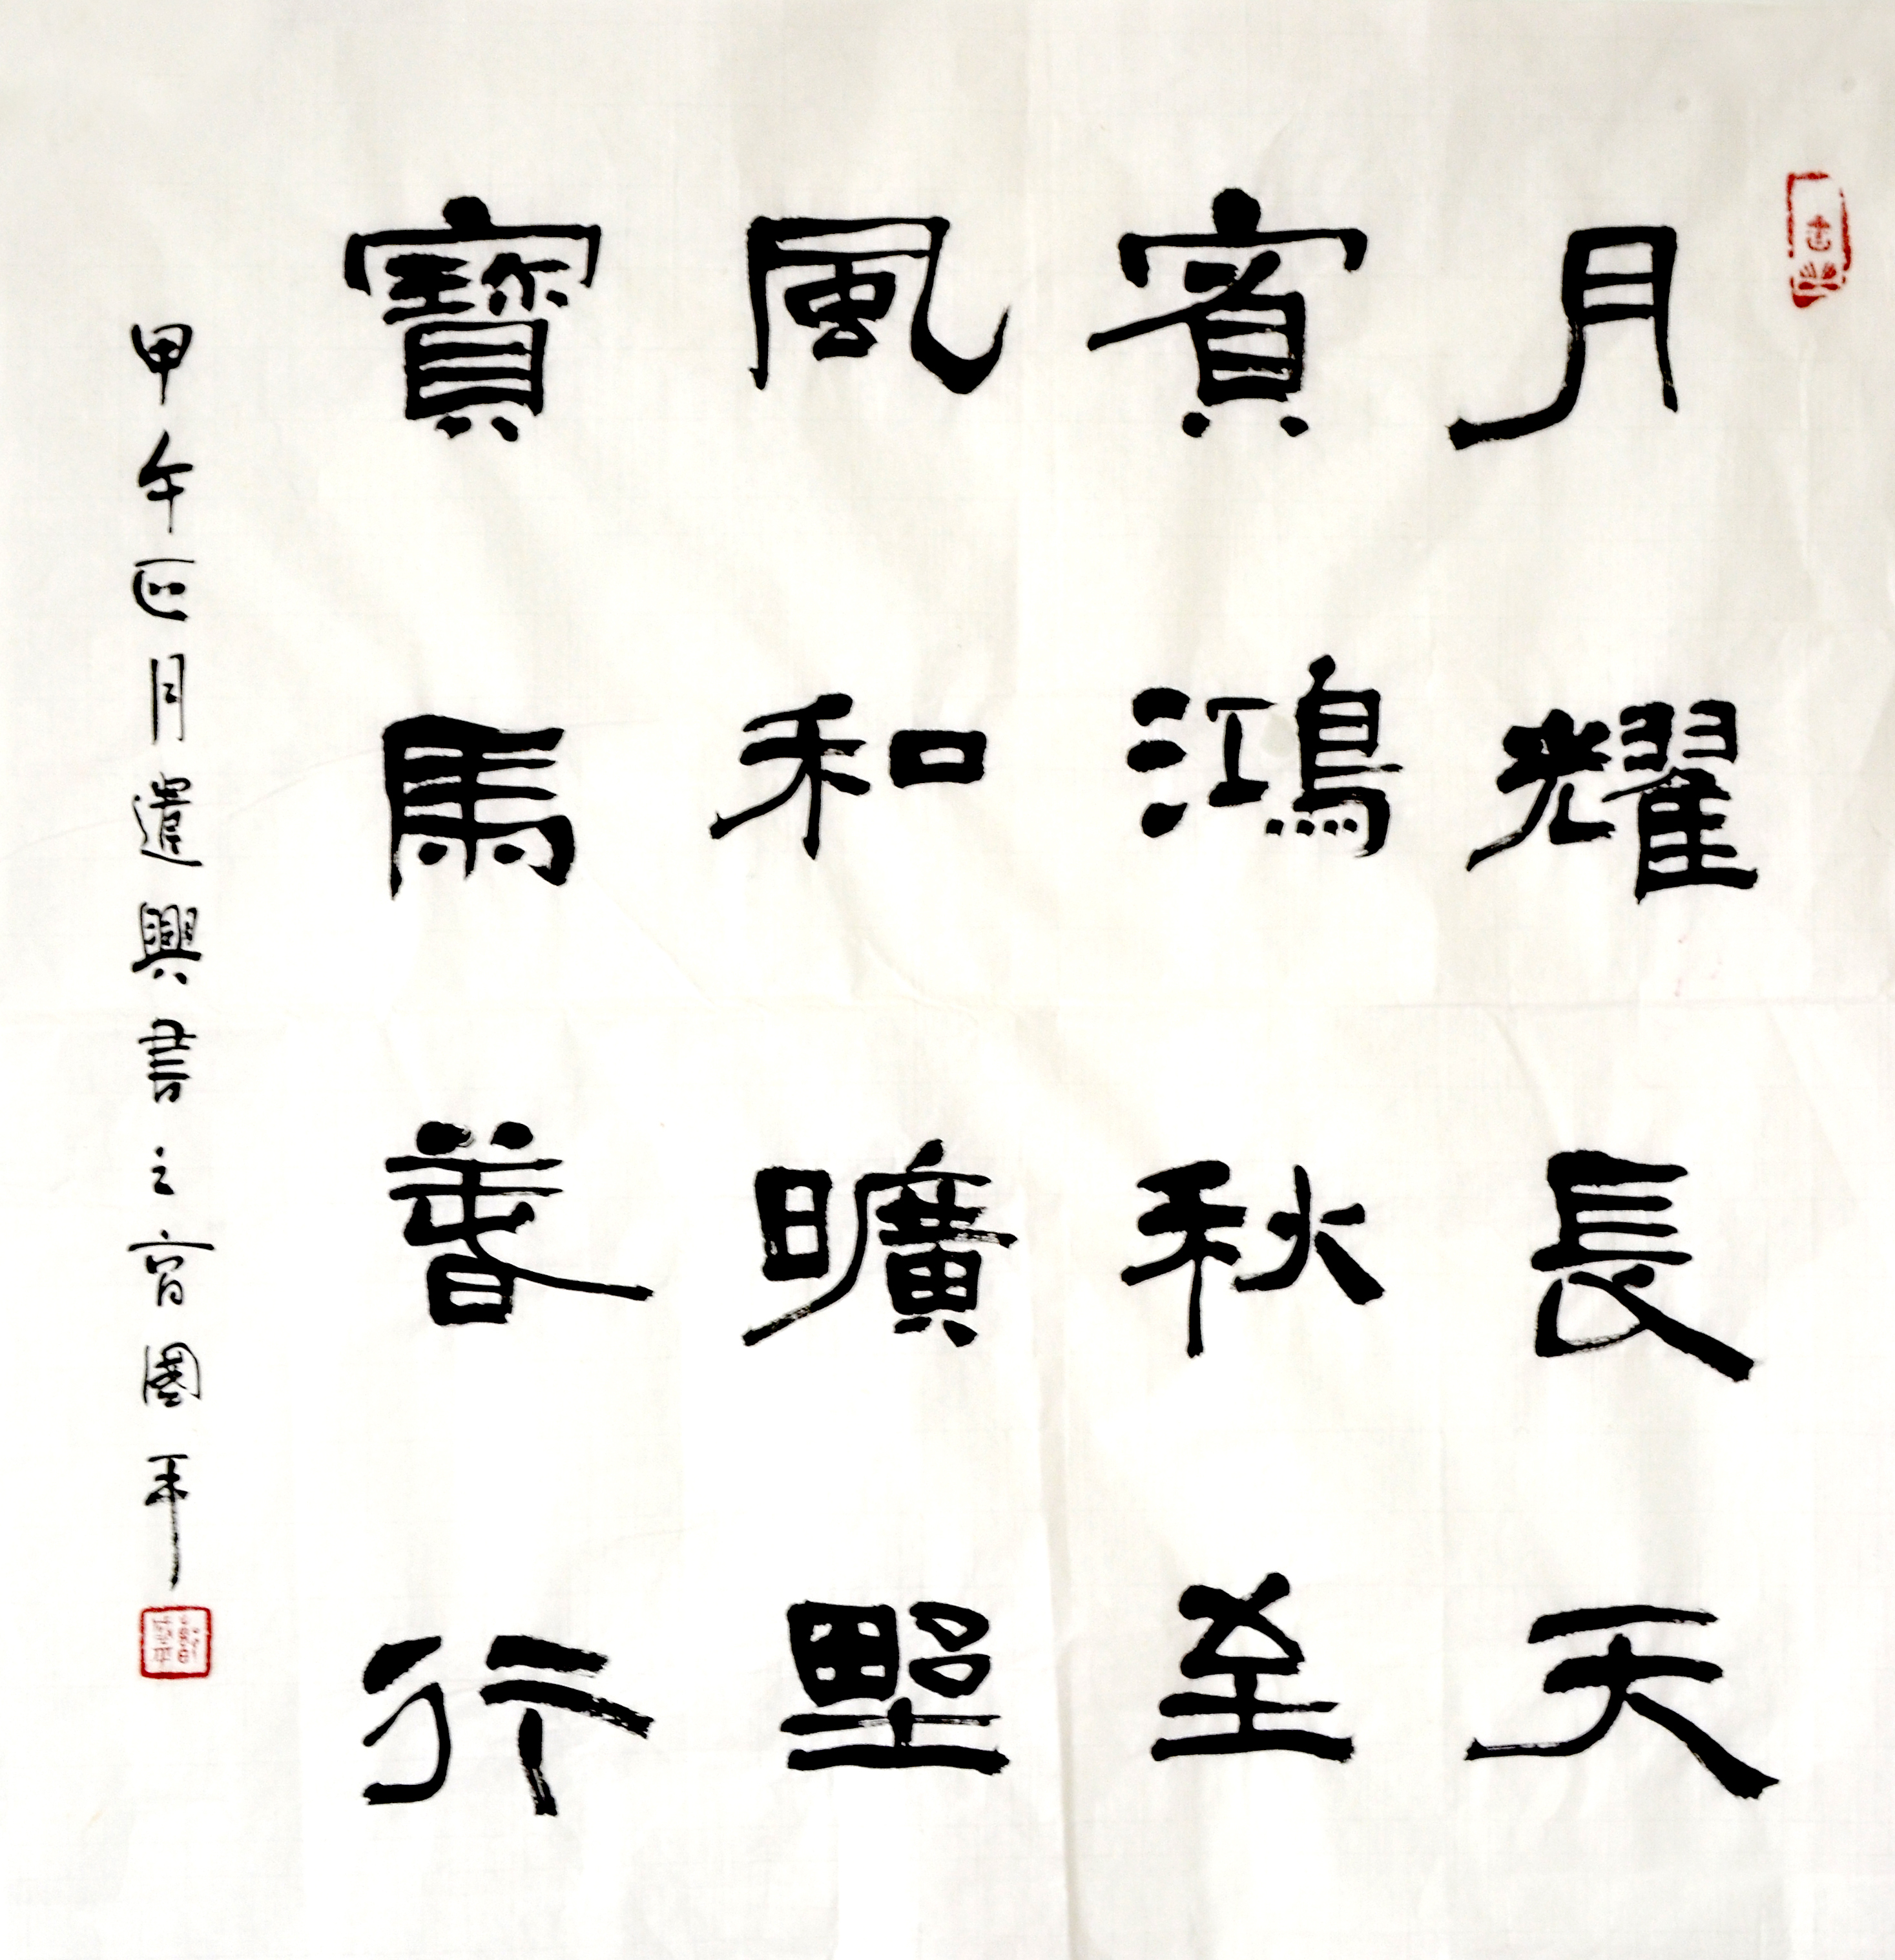 月耀長天
賓鴻秋至
風和曠野
寶馬善行
甲午正月遣興書之國平